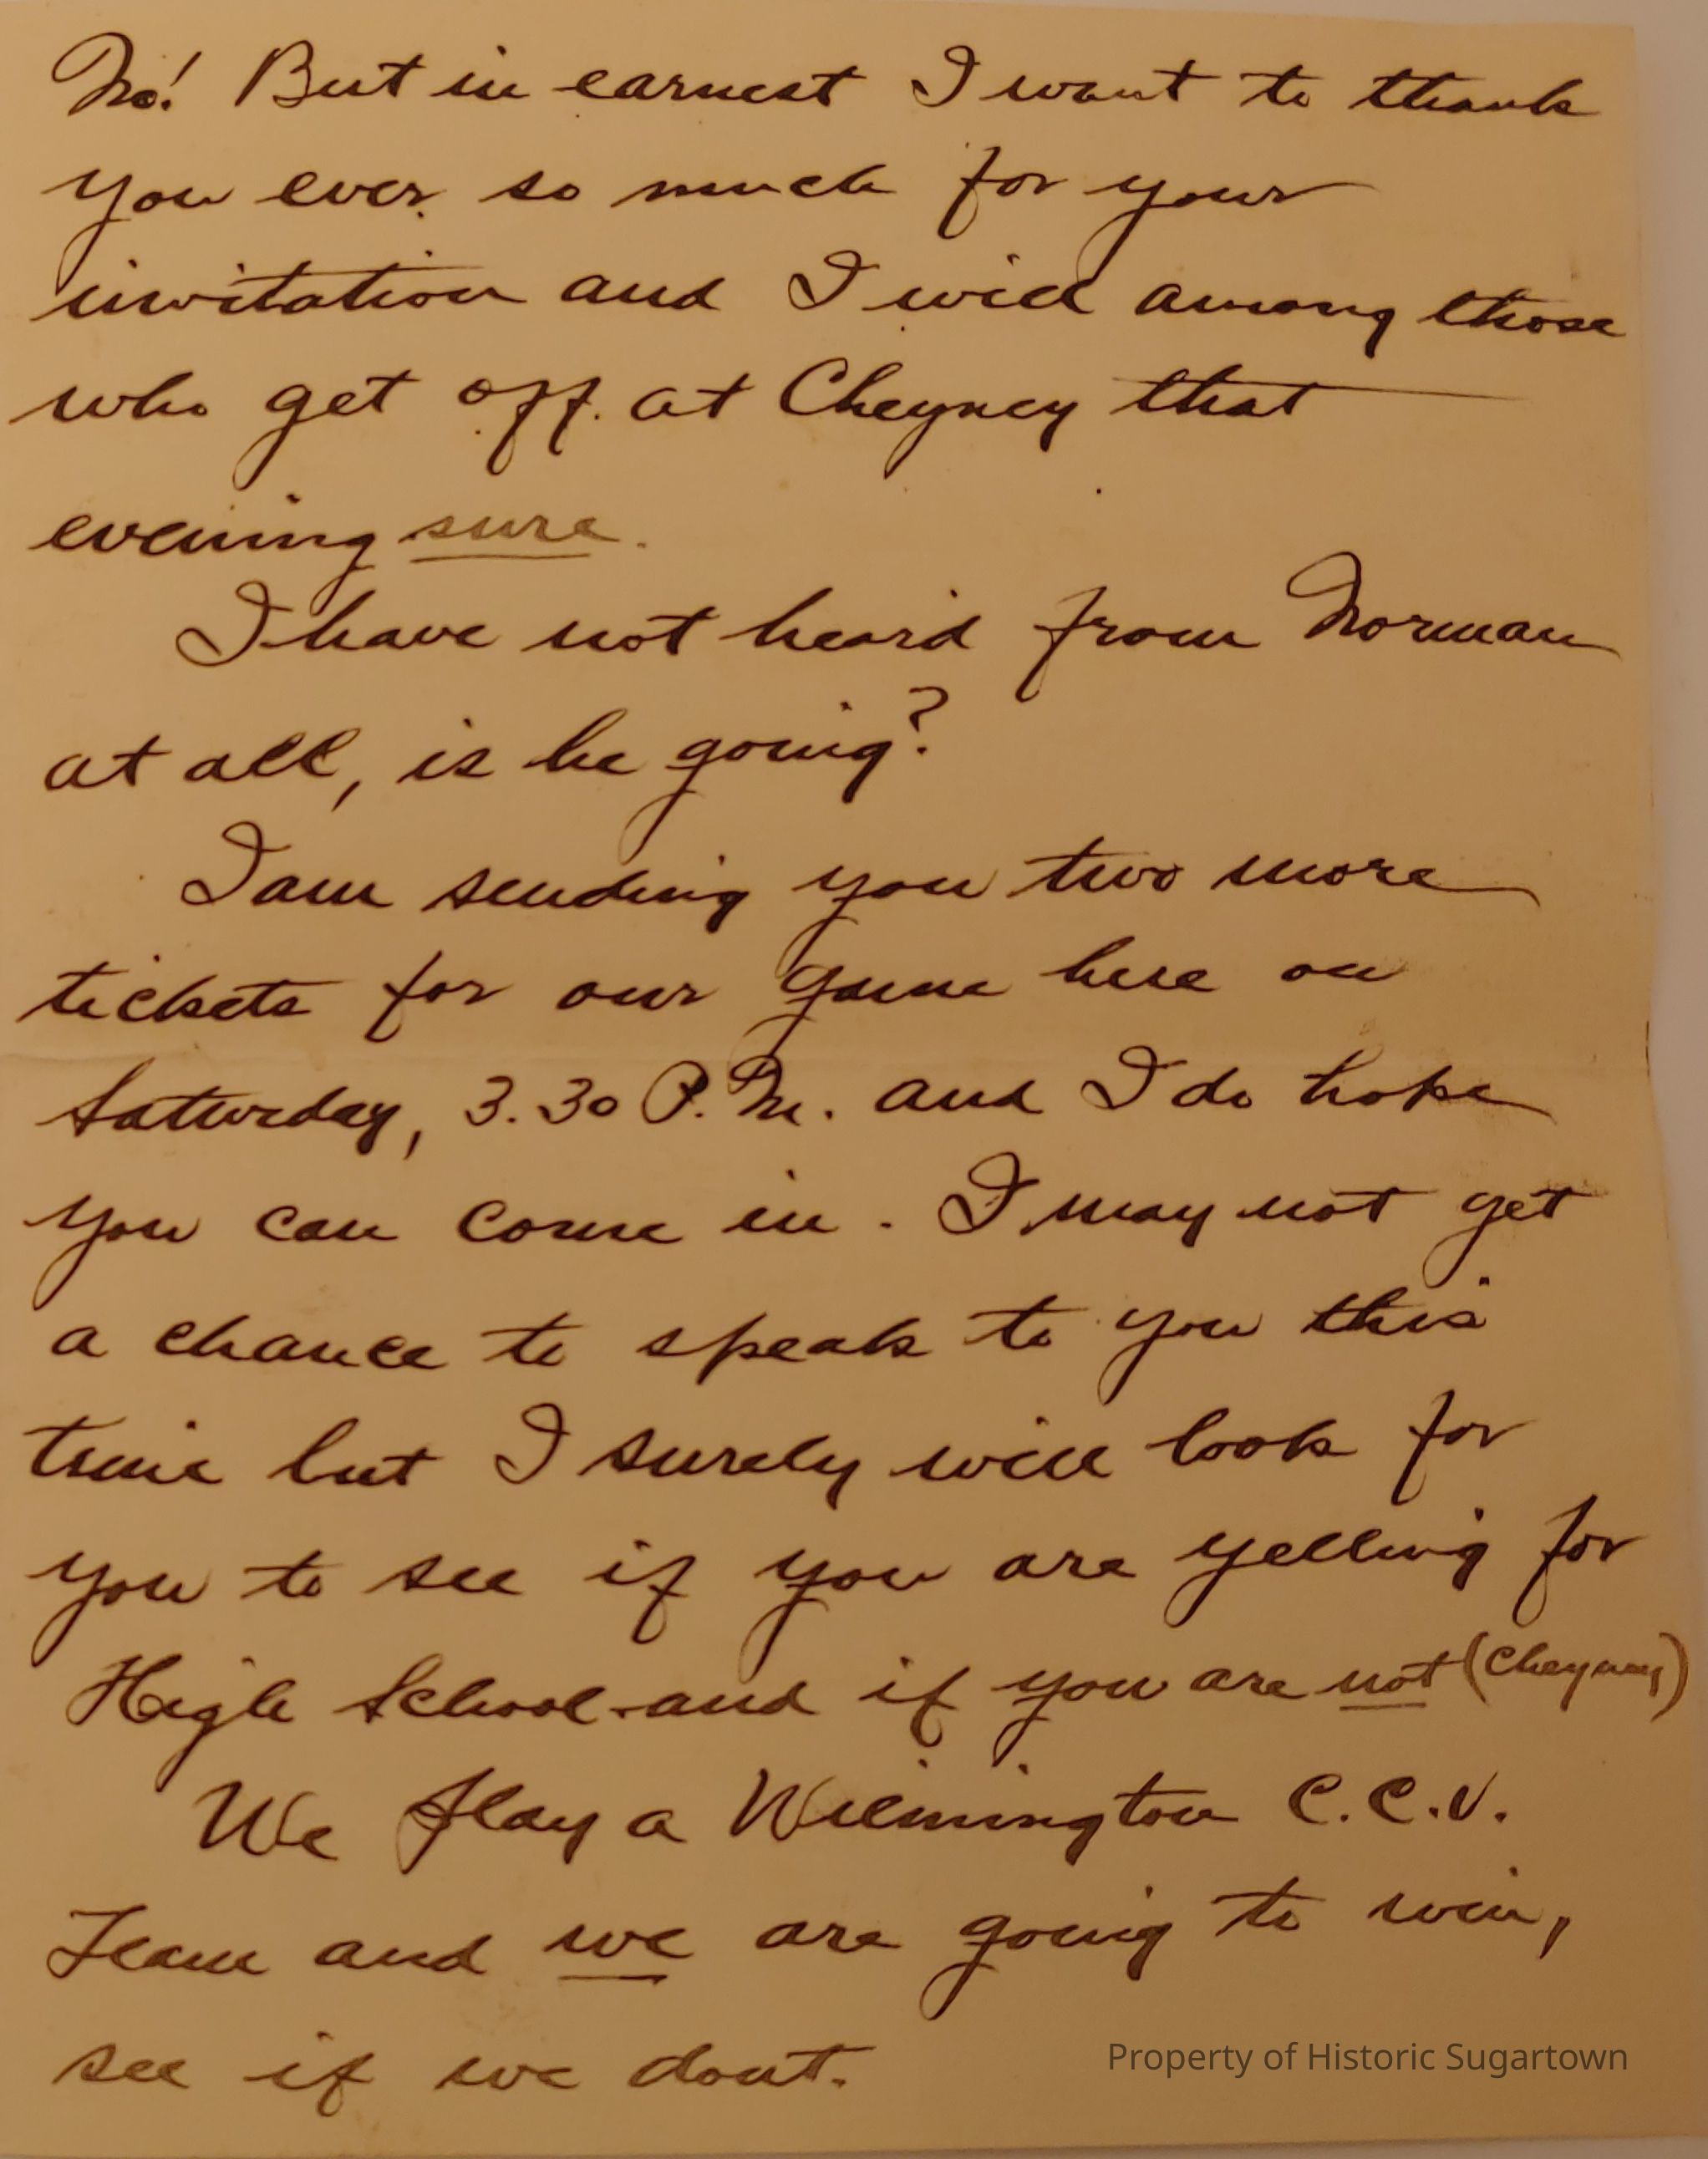 No! But in earnest I want to thank
you ever so much for your
invitation and I will among those
who get off at Cheyney that
evening sure.
I have not heard from Norman
at all, is he going?
I am sending you two more
tickets for our game here on
Saturday, 3.30 P.M. and I do hope
you can come in. I may not get
a chance to speak to you this
time but I surely will look for
you to see if you are yelling for
High School and if you are not (Cheyney)
We play a Wilmington C.C.V.
Team and we are going to win,
see if we dont.
Property of Historic Sugartown